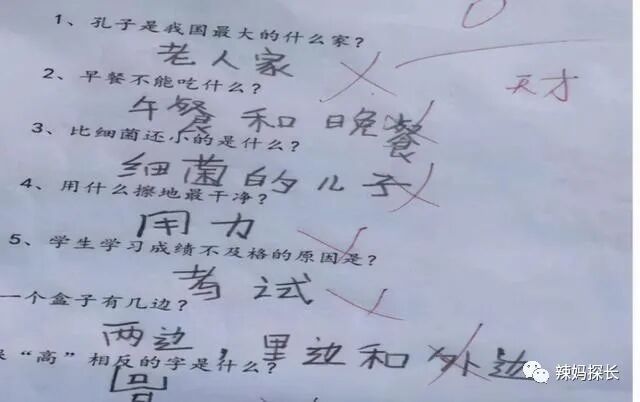 1、孔子是我国最大的什么家？
老人家
天才
2、早餐不能吃什么？
午餐和晚餐
3、比细菌还小的是什么？
细菌的儿子
4、用什么擦地最干净？
用力
5、学生学习成绩不及格的原因是？
考试
一个盒子有几边？
两边，里边和外边
“高”相反的字是什么？
辣妈探长